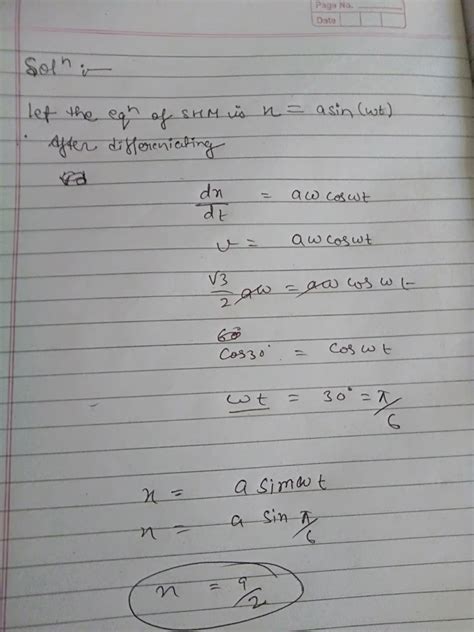 Page No.
Date
Solⁿ :-
Let the eqⁿ of SHM is x = a sin(ωt)
After differenciating
dx/dt = aω cos ωt
v = aω cos ωt
√3/2 aω = aω cos ωt
cos30° = cos ωt
ωt = 30° = π/6
x = a sin ωt
x = a sin π/6
x = a/2